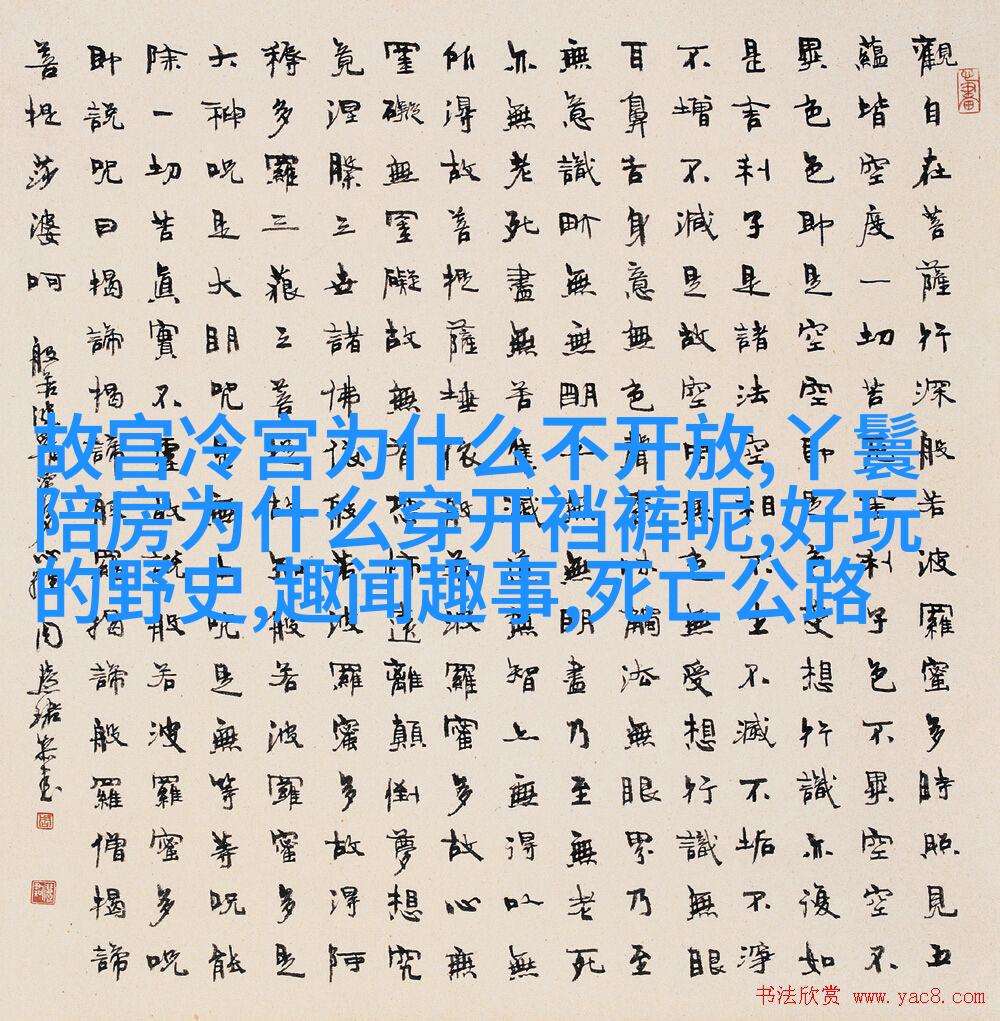 觀自在菩薩行深般若波羅蜜多時照見五
蘊皆空度一切苦厄舍利子色不異空空不
異色色即是空空即是色受想行識亦復如
是舍利子是諸法空相不生不滅不垢不淨
不增不減是故空中無色無受想行識無眼
耳鼻舌身意無色聲香味觸法無眼界乃至
無意識界無無明亦無無明盡乃至無老死
亦無老死盡無苦集滅道無智亦無得以無
所得故菩提薩埵依般若波羅蜜多故心無
罣礙無罣礙故無有恐怖遠離顛倒夢想究
竟涅槃三世諸佛依般若波羅蜜多故得阿
耨多羅三藐三菩提故知般若波羅蜜多是
大神咒是大明咒是無上咒是無等等咒能
除一切苦真實不虛故說般若波羅蜜多咒
即說咒曰揭諦揭諦般羅揭諦般羅僧揭諦
菩提莎婆呵
般若波羅蜜多心經 周慧珺恭書
故宫冷宫为什么不开放,丫鬟
陪房为什么穿开裆裤呢,好玩
的野史,趣闻趣事,死亡公路
书法欣赏 www.yac8.com